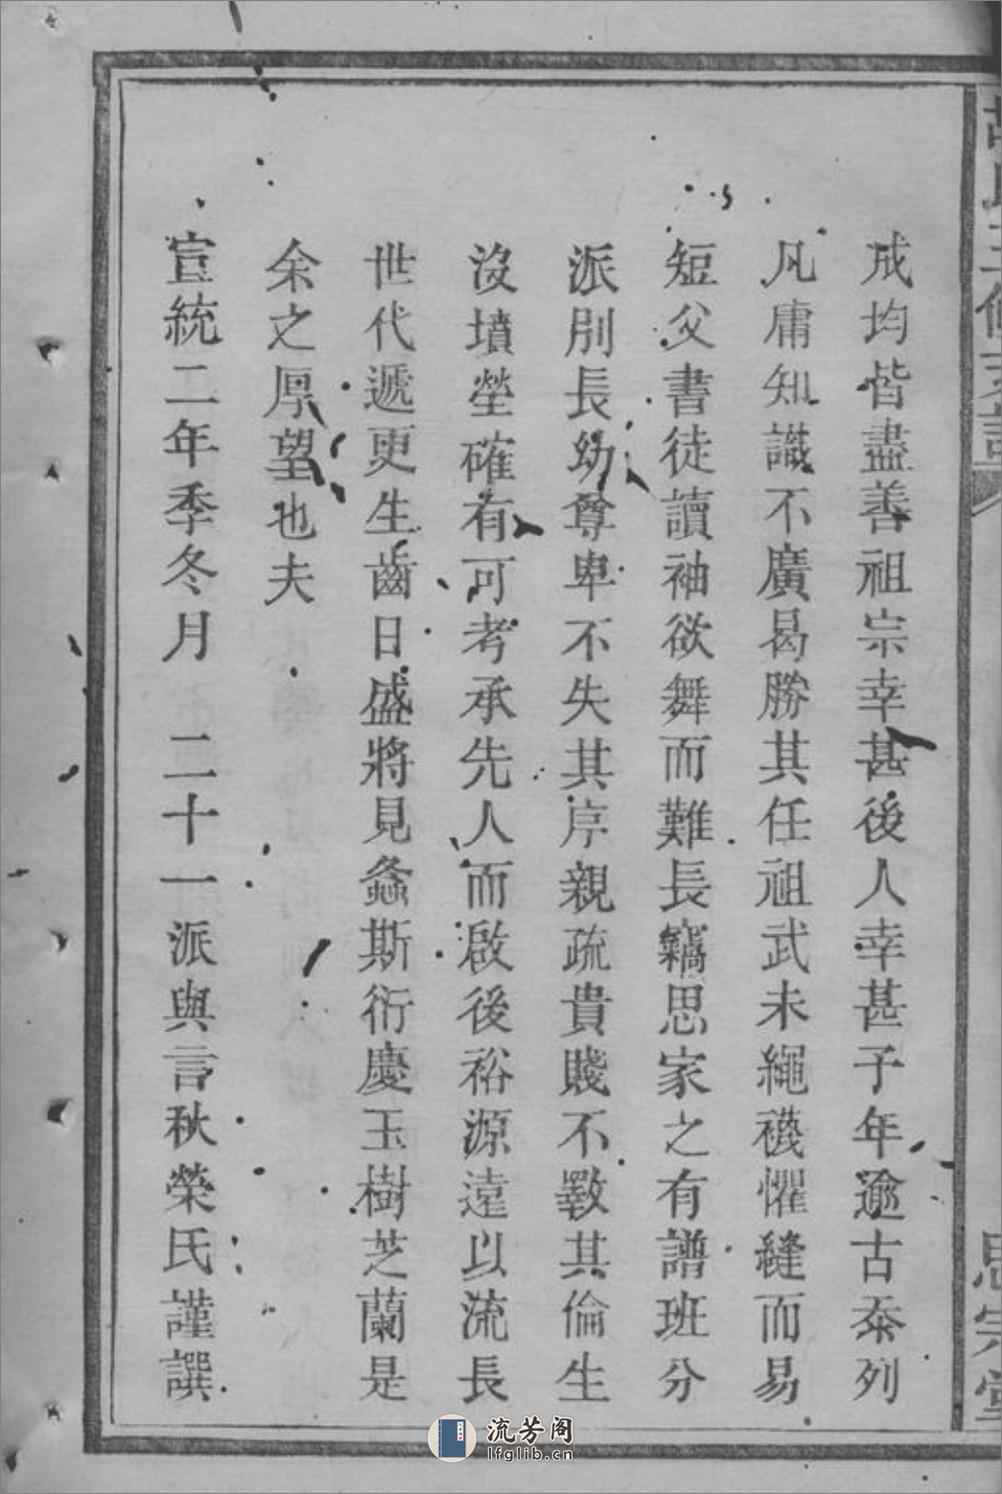 成均皆盡善祖宗幸甚後人幸甚子年逾古忝列
凡庸知識不廣曷勝其任祖武未繩襪懼縫而易
短父書徒讀袖欲舞而難長竊思家之有譜班分
派別長幼尊卑不失其序親疏貴賤不斁其倫生
沒墳塋確有可考承先人而啟後裕源遠以流長
世代遞更生齒日盛將見螽斯衍慶玉樹芝蘭是
余之厚望也夫
宣統二年季冬月 二十一派與言秋榮氏謹譔
思宗堂
流芳阁
lfglib.cn